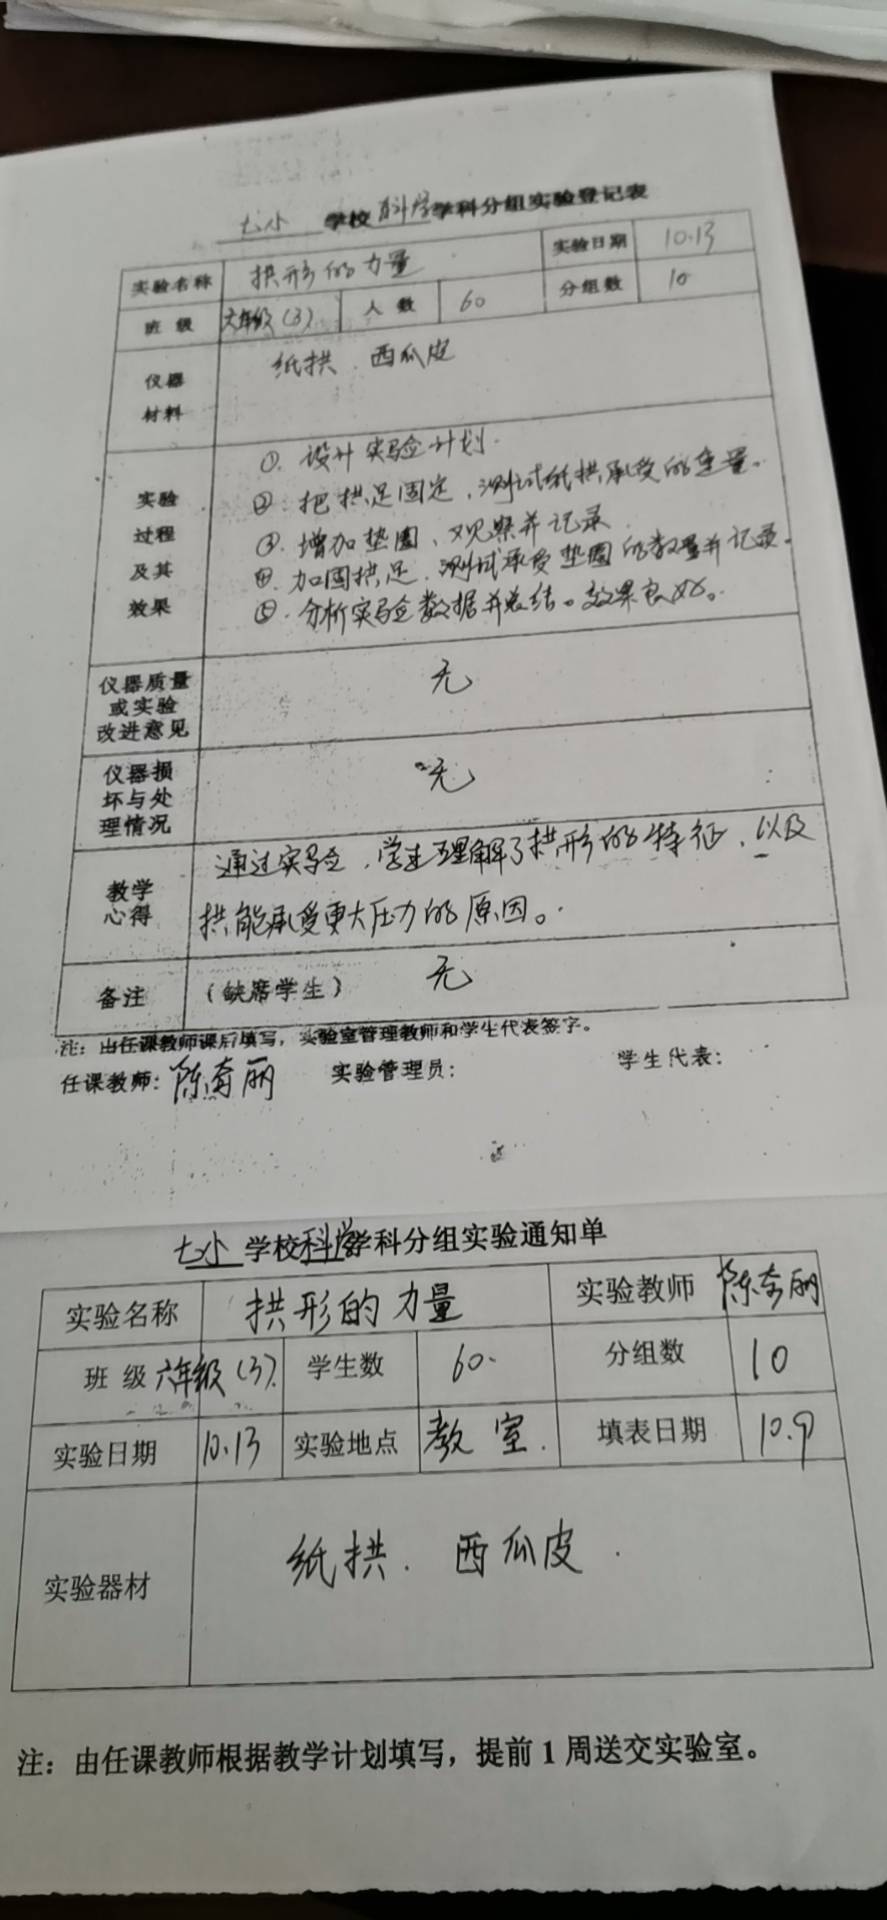 七小 学校科学学科分组实验登记表
实验名称 拱形的力量 实验日期 10.13
班 级 六年级(3) 人 数 60 分组数 10
仪器
材料
纸拱、西瓜皮
实验
过程
及其
效果
①.设计实验计划.
②.把拱足固定、测试纸拱承受的重量。
③.增加垫圈、观察并记录
④.加固拱足、测试承受垫圈的数量并记录。
⑤.分析实验数据并总结。效果良好。
仪器质量
或实验
改进意见
无
仪器损
坏与处
理情况
无
教学
心得
通过实验、学生理解了拱形的特征、以及
拱能承受更大压力的原因。
备注 (缺席学生) 无
注：由任课教师课后填写，实验室管理教师和学生代表签字。
任课教师：陈奇丽 实验管理员： 学生代表：
七小 学校科学学科分组实验通知单
实验名称 拱形的力量 实验教师 陈奇丽
班 级 六年级(3). 学生数 60. 分组数 10
实验日期 10.13 实验地点 教室. 填表日期 10.9
实验器材 纸拱. 西瓜皮.
注：由任课教师根据教学计划填写，提前 1 周送交实验室。